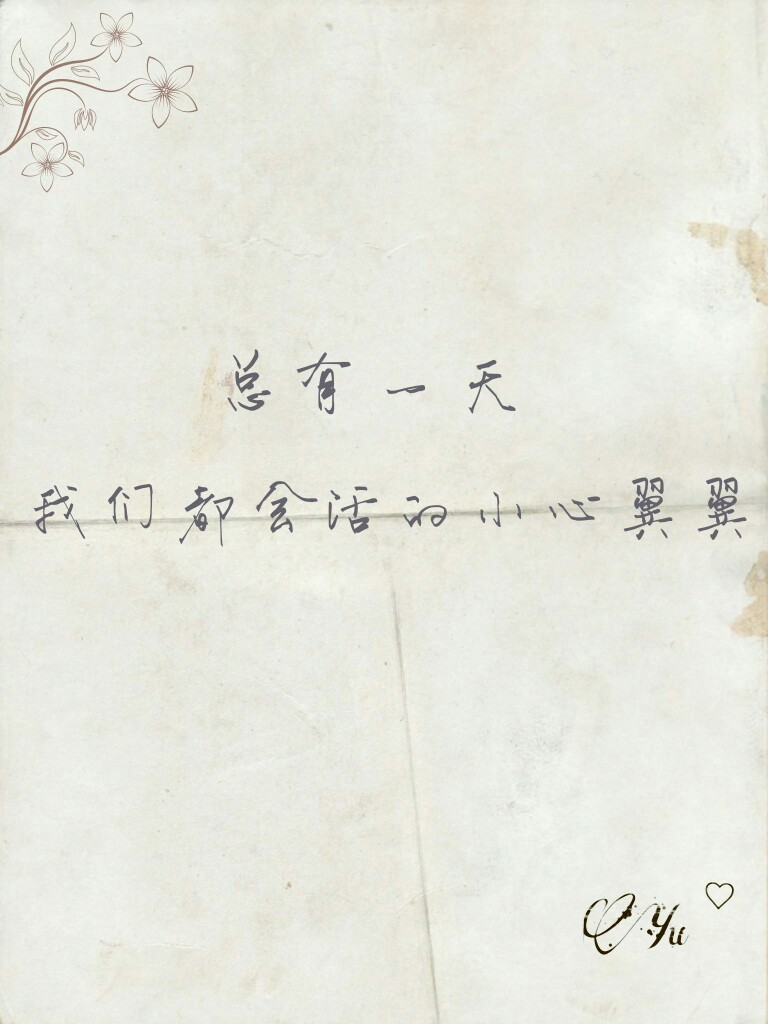 总有一天
我们都会活的小心翼翼
Yu